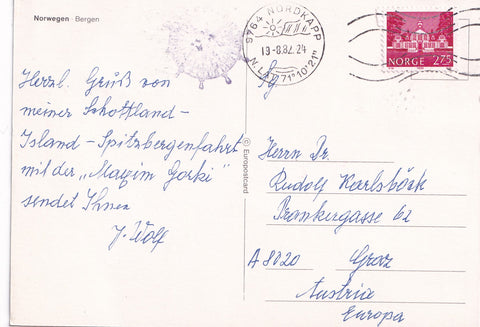 Norwegen · Bergen
9764 NORDKAPP
19-8.82.24
N. LAT 71°10'21"
NORGE 275
Herzl. Gruß von
meiner Schottland-
Island - Spitzbergenfahrt
mit der „Maxim Gorki"
sendet Ihnen
J. Wolf
© Europostcard
Herrn Dr.
Rudolf Karlsböck
Prankergasse 62
A 8020 Graz
Austria
Europa